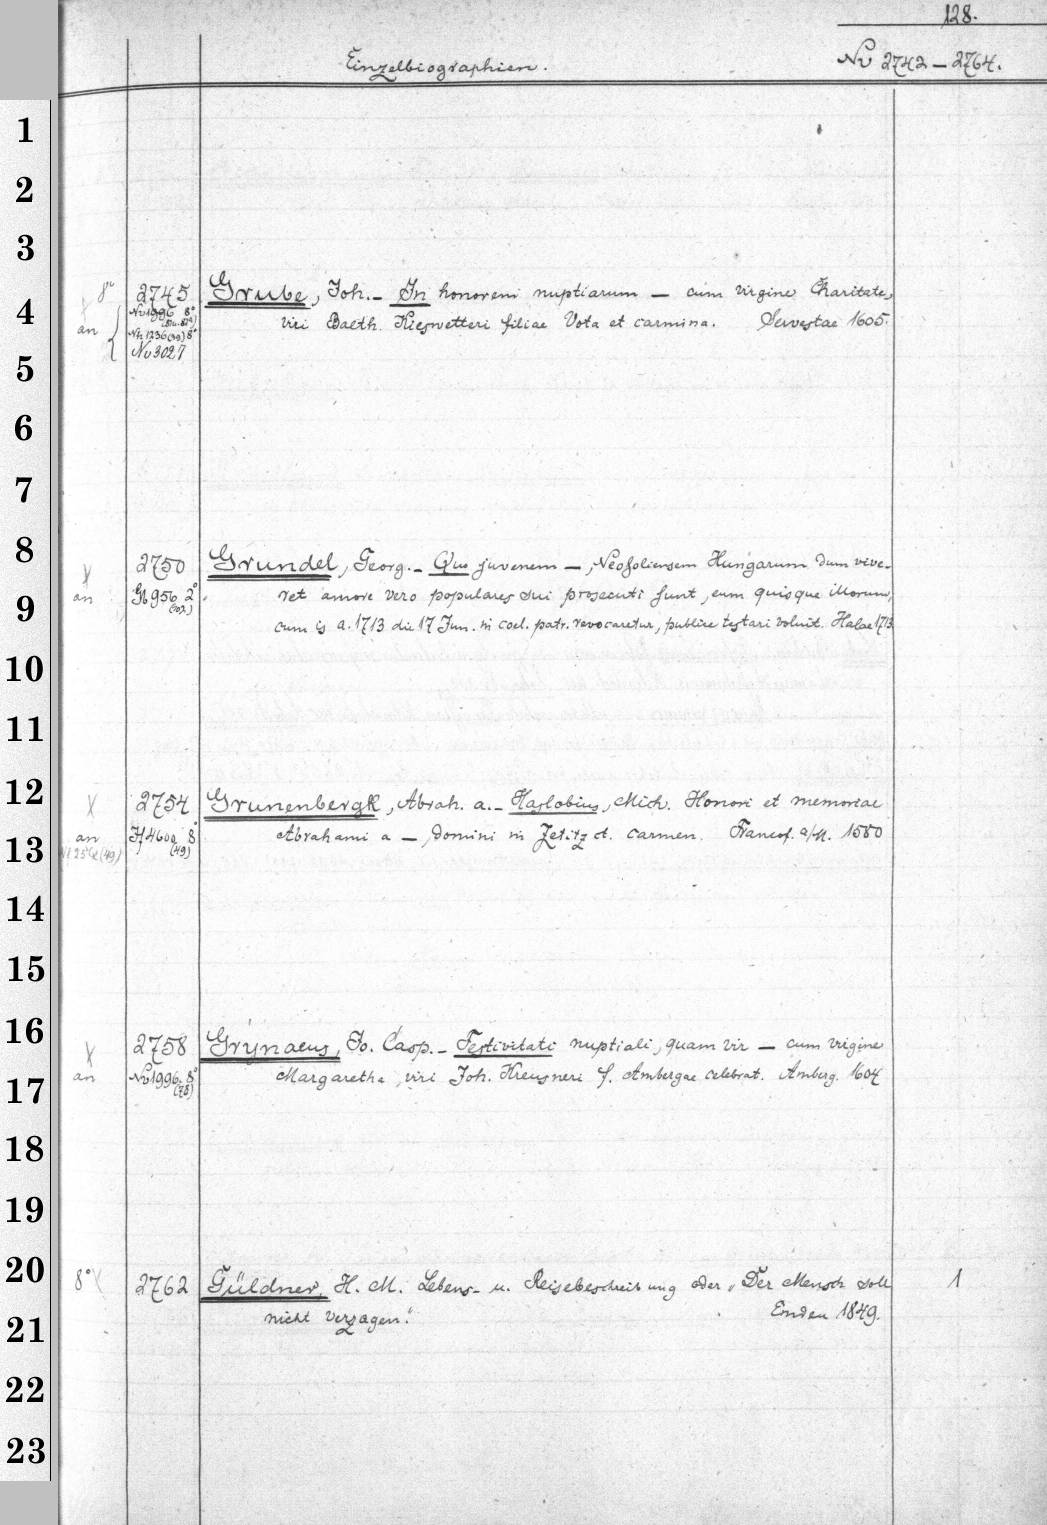 128.
Einzelbiographien.
Nv 2742 – 2764.
1
2
3
8° 2745 Grube, Joh. – In honorem nuptiarum — cum virgine Charitate,
4
Nv 1996 8°
an viri Balth. Kieswetteri filiae Vota et carmina. Servestae 1605.
Nv 3027
5
6
7
8
2750 Grundel, Georg. – Quo juvenem —, Neosoliensem Hungarum dum vive-
9
an Gb 956 2° ret amore vero populares sui prosecuti sunt, eum quisque illorum,
(102)
cum is a. 1713 die 17 Jun. in coel. patr. revocaretur, publice testari voluit. Halae 1713
10
11
12
X 2754 Grunenbergk, Abrah. a. – Haslobius, Mich. Honori et memoriae
13
an If 4600 8° Abrahami a —, domini in Zetitz ct. carmen. Francof. a/M. 1580
(49)
14
15
16
X 2758 Grynaeus, Jo. Casp. – Festivitati nuptiali, quam vir — cum virgine
17
an Nv 1996 8° Margaretha, viri Joh. Kreusneri f. Ambergae celebrat. Amberg. 1604
(78)
18
19
20
8° X 2762 Güldner, H. M. Lebens- u. Reisebeschreibung oder „Der Mensch soll 1
21
nicht verzagen." Emden 1849.
22
23